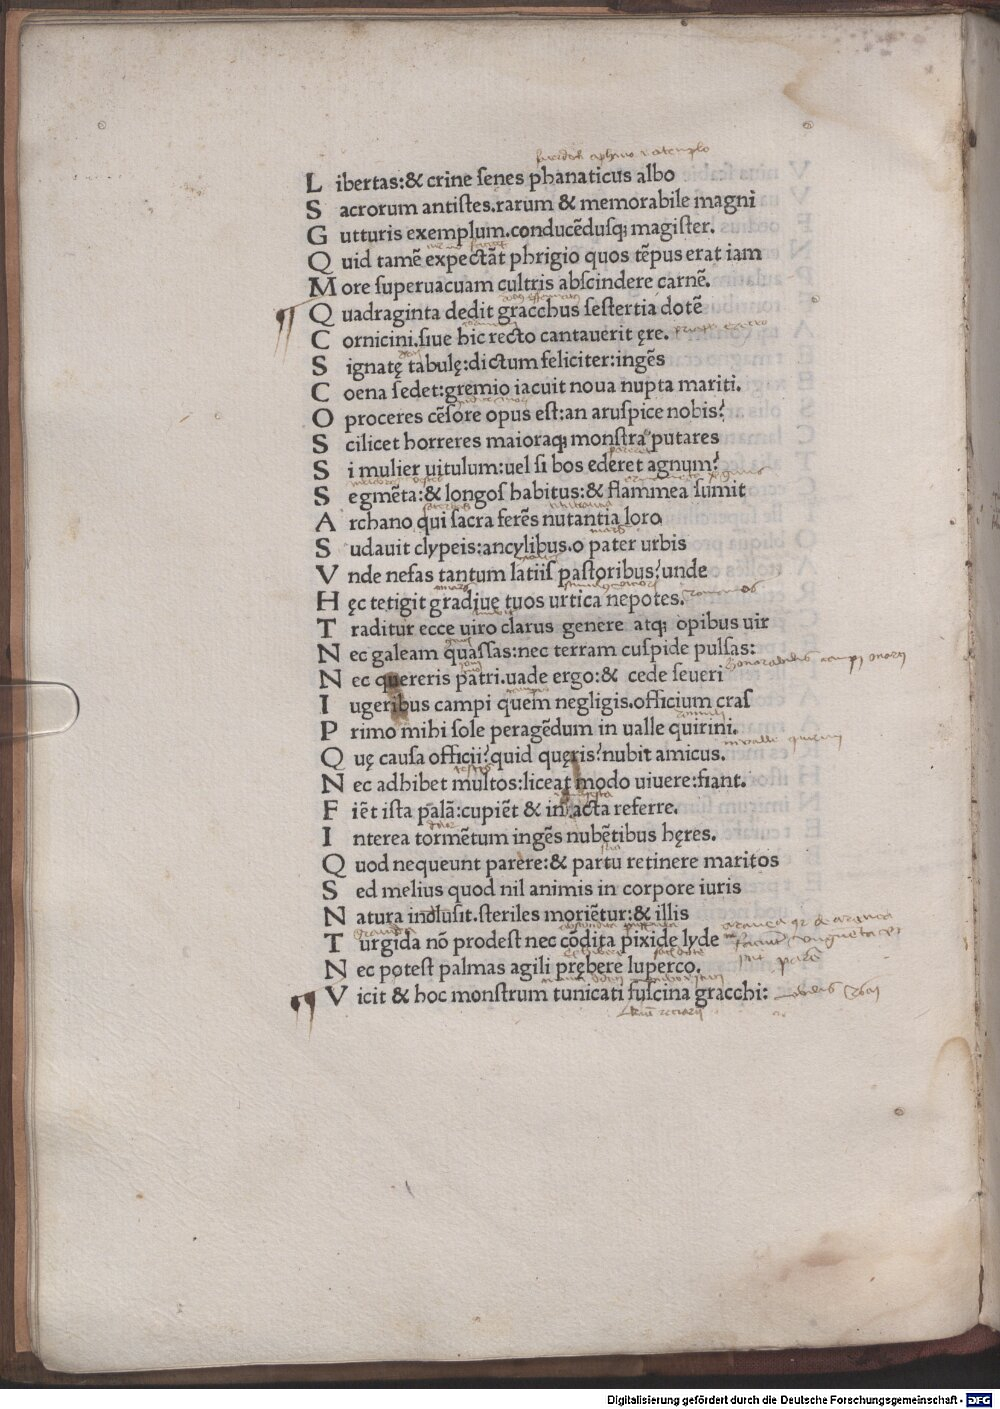 Libertas:& crine ſenes phanaticus albo
Sacrorum antiſtes.rarum & memorabile magni
Gutturis exemplum.conducēdusqȝ magiſter.
Quid tamē expectāt phrigio quos tēpus erat iam
More ſuperuacuam cultris abſcindere carnē.
Quadraginta dedit gracchus ſeſtertia dotē
Cornicini.ſiue hic recto cantauerit ęre.
Signatę tabulę:dictum feliciter:ingēs
Coena ſedet:gremio iacuit noua nupta mariti.
O proceres cēſore opus eſt:an aruſpice nobis?
Scilicet horreres maioraqȝ monſtra putares
Si mulier uitulum:uel ſi bos ederet agnum?
Segmēta:& longoſ habitus:& flammea ſumit
Archano qui ſacra ferēs nutantia loro
Sudauit clypeis:ancylibus.o pater urbis
Vnde nefas tantum latiiſ paſtoribus?unde
Hęc tetigit gradiue tuos urtica nepotes.
Traditur ecce uiro clarus genere atqȝ opibus uir
Nec galeam quaſſas:nec terram cuſpide pulſas:
Nec quereris patri.uade ergo:& cede ſeueri
Iugeribus campi quem negligis.officium craſ
Primo mihi ſole peragēdum in ualle quirini.
Quę cauſa officii?quid quęris?nubit amicus.
Nec adhibet multos:liceat modo uiuere:fiant.
Fiēt iſta palā:cupiēt & in acta referre.
Interea tormētum ingēs nubētibus hęres.
Quod nequeunt parere:& partu retinere maritos
Sed melius quod nil animis in corpore iuris
Natura indluſit.ſteriles moriētur:& illis
Turgida nō prodeſt nec cōdita pixide lyde
Nec poteſt palmas agili prębere luperco.
Vicit & hoc monſtrum tunicati fuſcina gracchi:
Digitalisierung gefördert durch die Deutsche Forschungsgemeinschaft - DFG